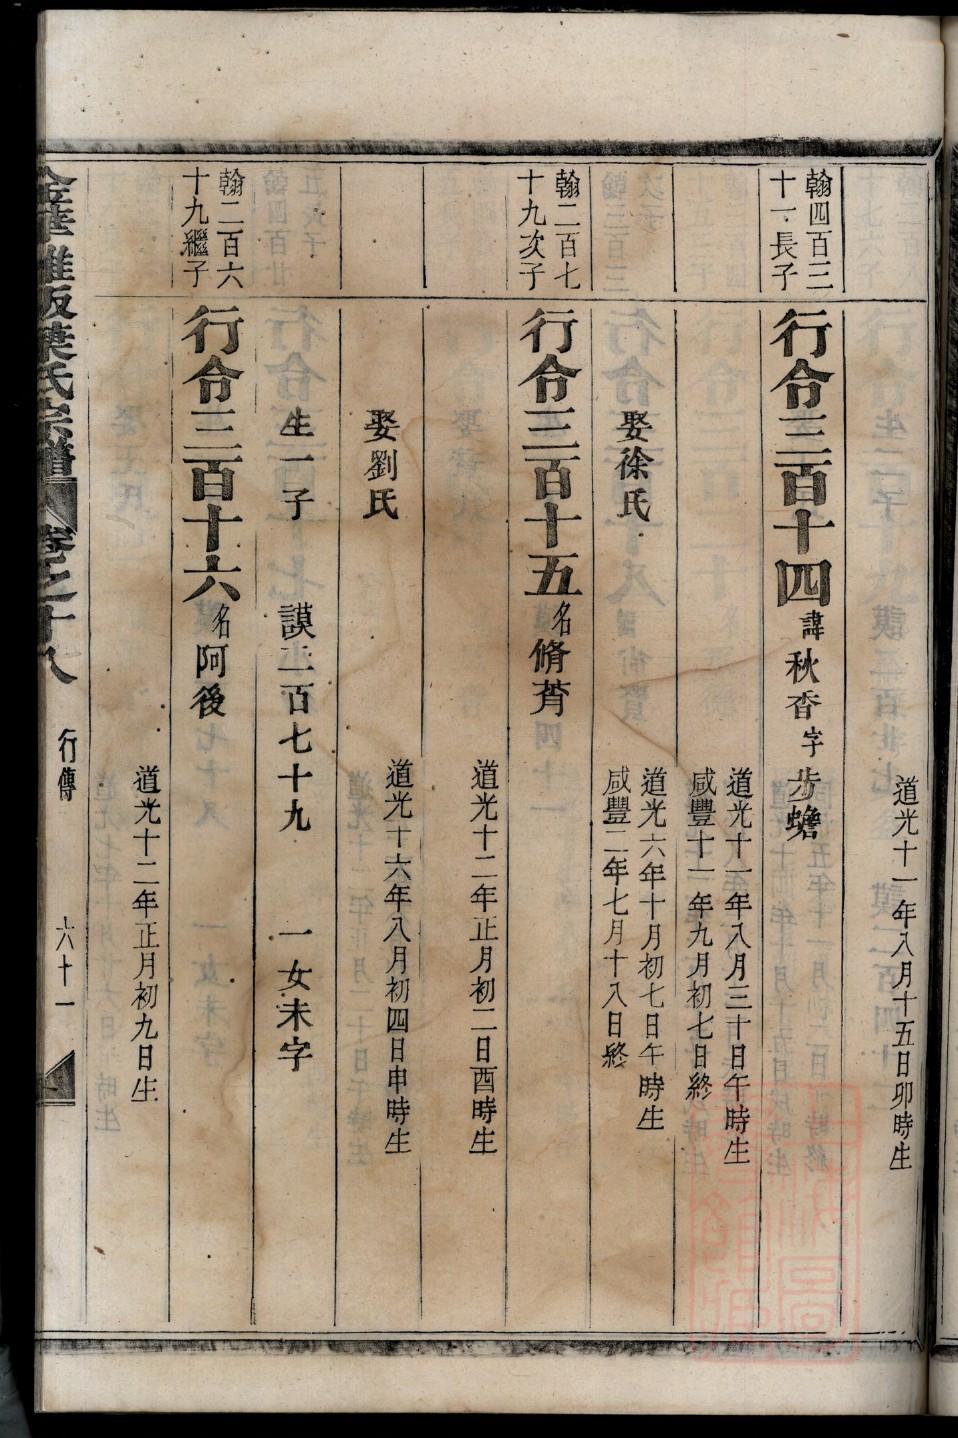 道光十一年八月十五日卯時生
翰四百三十一長子
行令三百十四 諱秋香字步蟾
道光十一年八月三十日午時生
咸豐十一年九月初七日終
娶徐氏
道光六年十月初七日午時生
咸豐二年七月十八日終
翰二百七十九次子
行令三百十五 名脩莦
道光十二年正月初二日酉時生
娶劉氏
道光十六年八月初四日申時生
生一子 謨二百七十九 一女未字
翰二百六十九繼子
行令三百十六 名阿後
道光十二年正月初九日生
葉氏宗譜 卷之十八 行傳 六十一